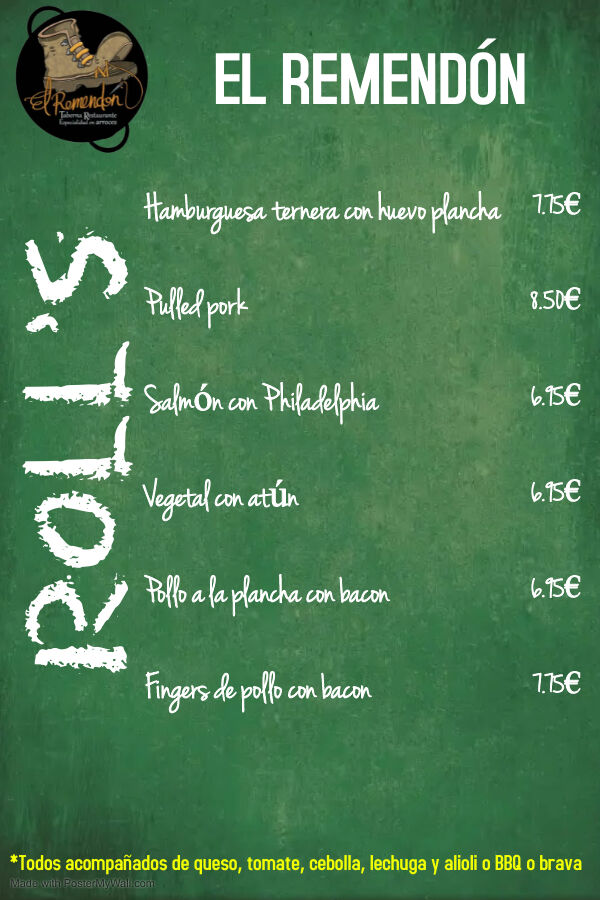 El Remendón
Taberna Restaurante
Especialidad en arroces
EL REMENDÓN
ROLL'S
Hamburguesa ternera con huevo plancha 7.75€
Pulled pork 8.50€
Salmón con Philadelphia 6.95€
Vegetal con atún 6.95€
Pollo a la plancha con bacon 6.95€
Fingers de pollo con bacon 7.75€
*Todos acompañados de queso, tomate, cebolla, lechuga y alioli o BBQ o brava
Made with PosterMyWall.com